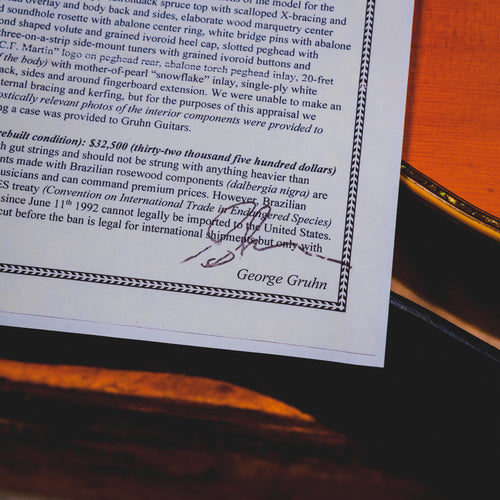 of the model for the
Adirondack spruce top with scalloped X-bracing and
overlay and body back and sides, elaborate wood marquetry center
d soundhole rosette with abalone center ring, white bridge pins with abalone
ond shaped volute and grained ivoroid heel cap, slotted peghead with
three-on-a-strip side-mount tuners with grained ivoroid buttons and
"C.F. Martin" logo on peghead rear, abalone torch peghead inlay, 20-fret
f the body) with mother-of-pearl "snowflake" inlay, single-ply white
ack, sides and around fingerboard extension. We were unable to make an
ternal bracing and kerfing, but for the purposes of this appraisal we
ostically relevant photos of the interior components were provided to
ng a case was provided to Gruhn Guitars.
rebuilt condition): $32,500 (thirty-two thousand five hundred dollars)
th gut strings and should not be strung with anything heavier than
nts made with Brazilian rosewood components (dalbergia nigra) are
usicians and can command premium prices. However, Brazilian
ES treaty (Convention on International Trade in Endangered Species)
since June 11th 1992 cannot legally be imported to the United States.
cut before the ban is legal for international shipments but only with
George Gruhn